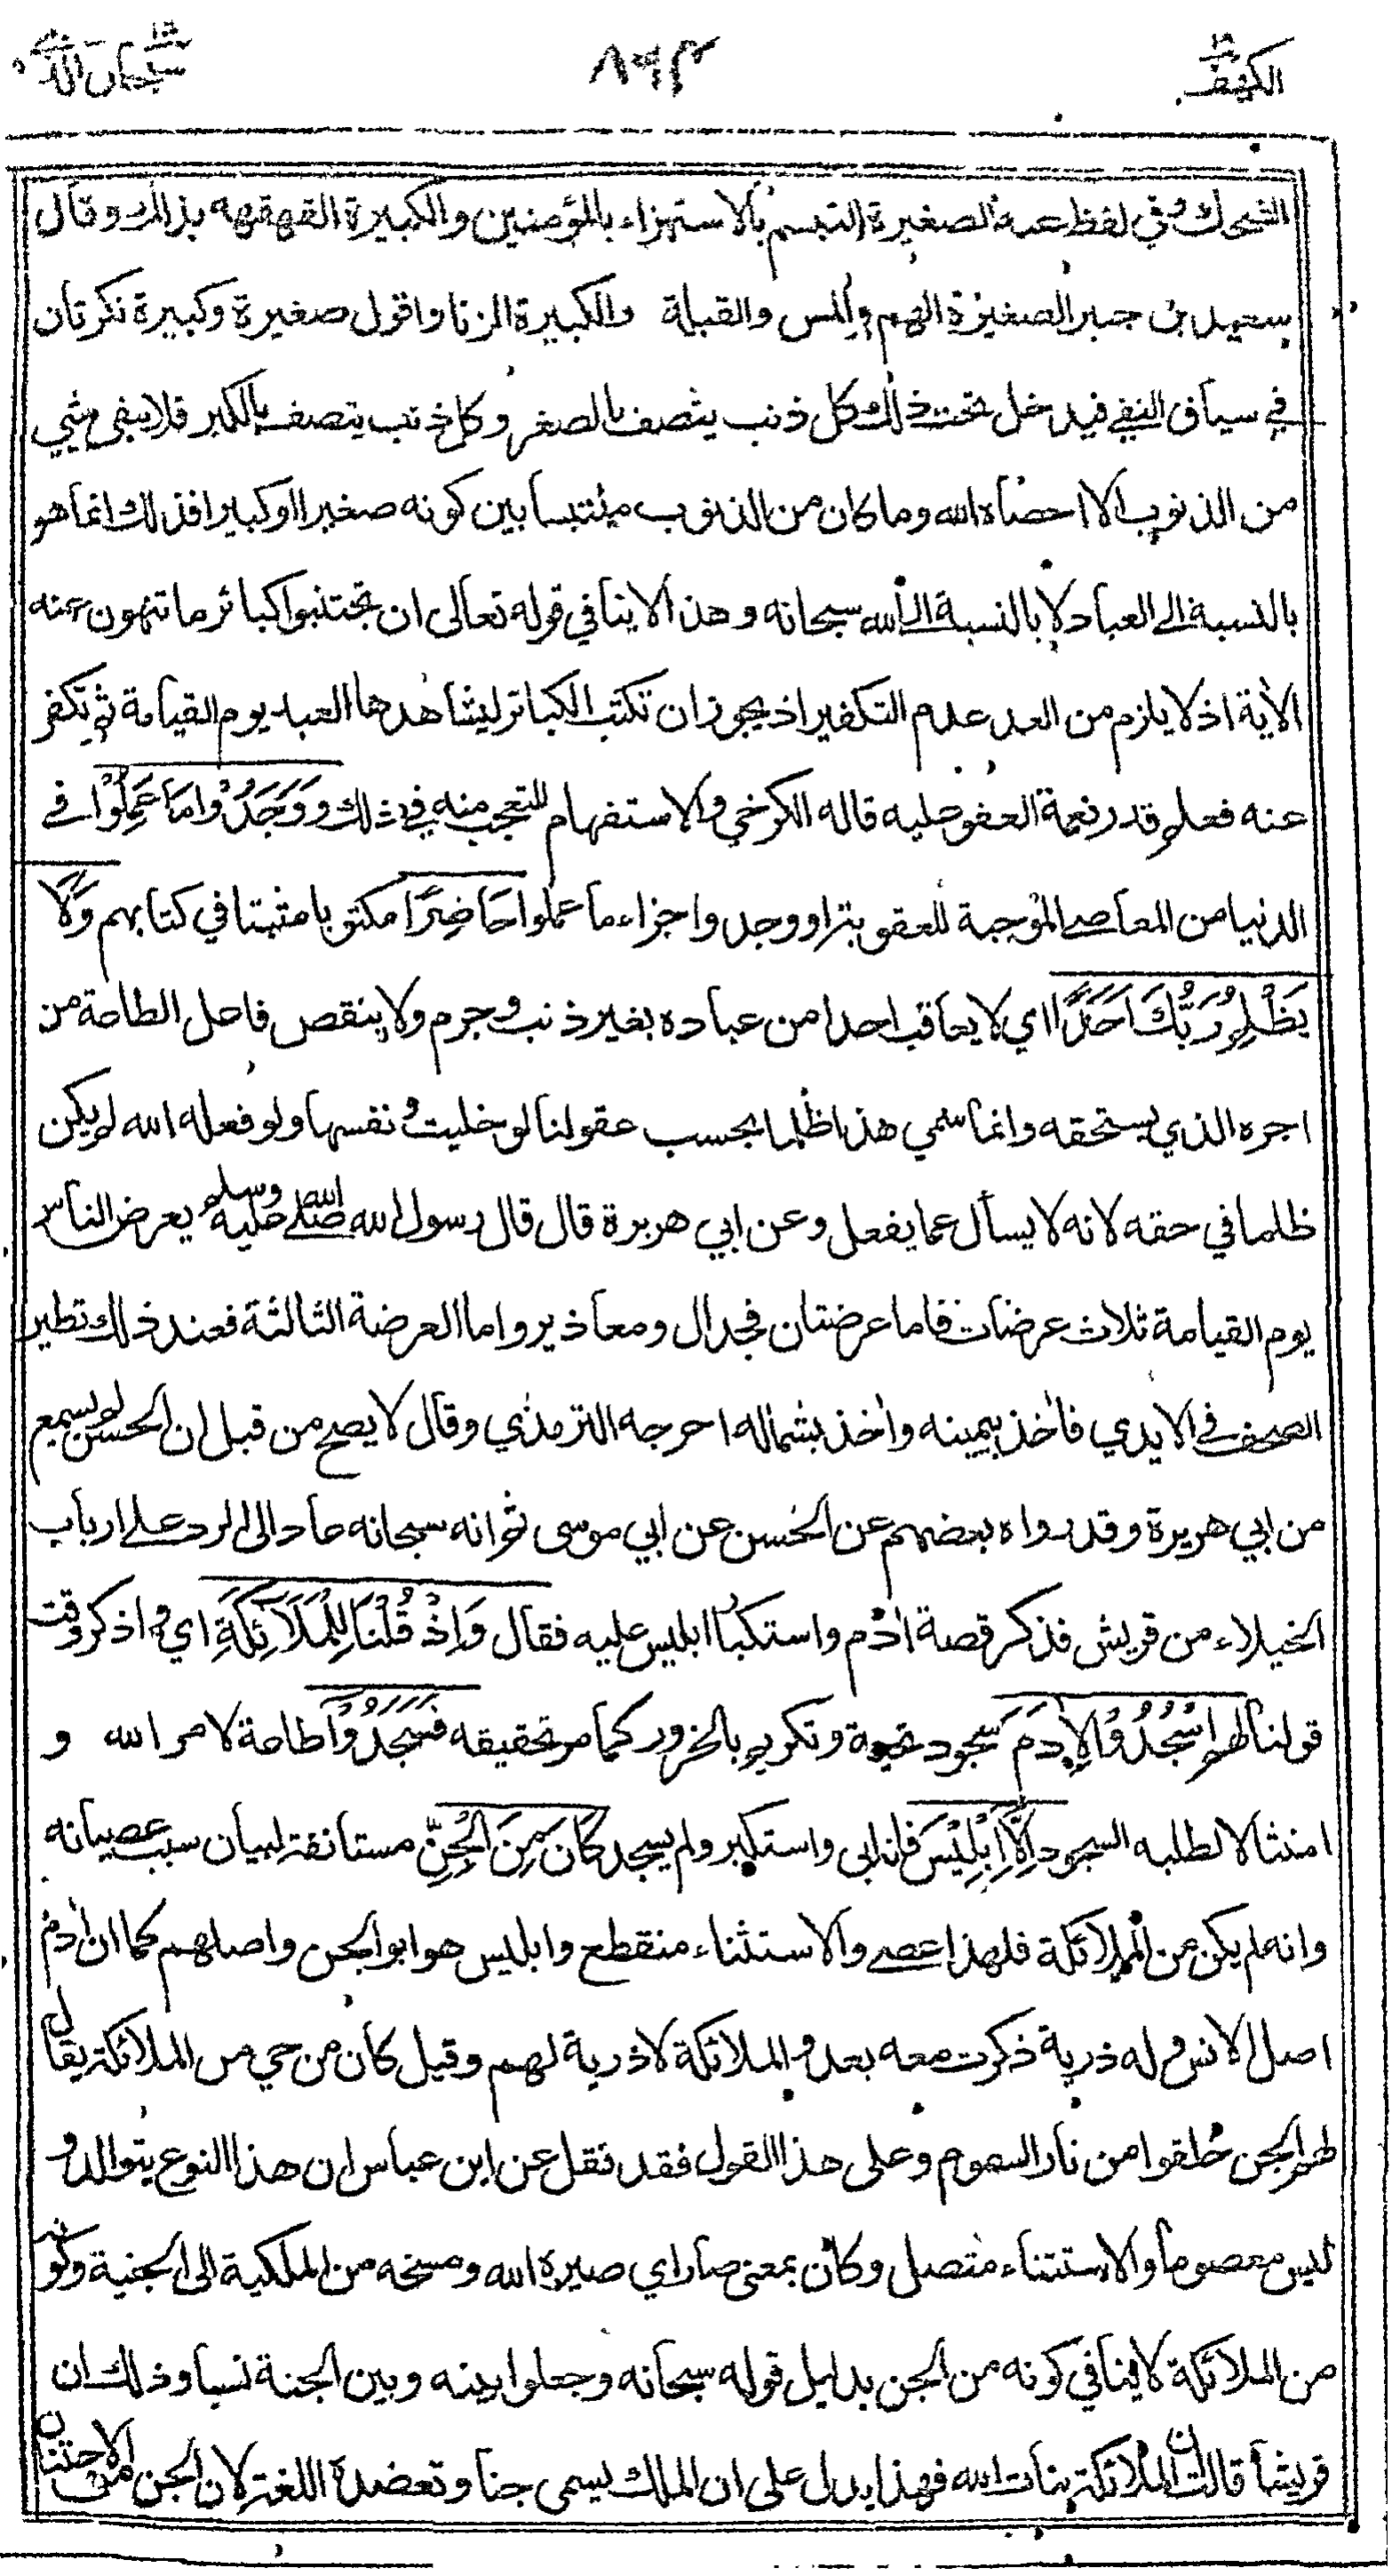 الكهف ١٨
٨٦٣
سبحان الذي ١٥
الضحك وفي لفظ عنه الصغيرة التبسم بالاستهزاء بالمؤمنين والكبيرة القهقهه بذالك وقال
سعيد بن جبير الصغيرة الهم والمس والقبلة والكبيرة الزنا واقول صغيرة وكبيرة نكرتان
في سياق النفي فيدخل تحت ذلك كل ذنب يتصف بالصغر وكل ذنب يتصف بالكبر فلا يبقى شيء
من الذنوب الا احصاه الله وما كان من الذنوب ملتبسا بين كونه صغيرا اوكبيرا فذلك انما هو
بالنسبة الى العباد لا بالنسبة الى الله سبحانه وهذا لا ينافي قوله تعالى ان تجتنبوا كبائر ما تنهون عنه
الاية اذ لا يلزم من العد عدم التكفير اذ يجوز ان تكتب الكبائر ليشاهدها العبد يوم القيامة ثم تكفر
عنه فعلم قدر نعمة العفو عليه قاله الكرخي والاستفهام للتعجب منه في ذلك وَوَجَدُوْا مَا عَمِلُوْا في
الدنيا من المعاصي الموجبة للعقوبة او وجدوا جزاء ما عملوا حَاضِرًا مكتوبا مثبتا في كتابهم وَلَا
يَظْلِمُ رَبُّكَ اَحَدًا اي لا يعاقب احدا من عباده بغير ذنب وجرم ولا ينقص فاعل الطاعة من
اجره الذي يستحقه وانما سمي هذا ظلما بحسب عقولنا لو خليت ونفسها ولو فعله الله لم يكن
ظلما في حقه لانه لا يسأل عما يفعل وعن ابي هريرة قال قال رسول الله صلى الله عليه وسلم يعرض الناس
يوم القيامة ثلاث عرضات فاما عرضتان فجدال ومعاذير واما العرضة الثالثة فعند ذلك تطير
الصحف في الايدي فأخذ بيمينه وأخذ بشماله اخرجه الترمذي وقال لا يصح من قبل ان الحسن لم يسمع
من ابي هريرة وقد رواه بعضهم عن الحسن عن ابي موسى ثم انه سبحانه عاد الى الرد على ارباب
الخيلاء من قريش فذكر قصة ادم واستكبار ابليس عليه فقال وَاِذْ قُلْنَا لِلْمَلَآئِكَةِ اي واذكر وقت
قولنا لهم اسْجُدُوْا لِاٰدَمَ سجود تحية وتكريم بالخرور كما مر تحقيقه فَسَجَدُوْا طاعة لامر الله و
امتثالا لطلبه السجود اِلَّا اِبْلِيْسَ فانه ابى واستكبر ولم يسجد كَانَ مِنَ الْجِنِّ مستانفة لبيان سبب عصيانه
وانه لم يكن من الملائكة فلهذا عصى والاستثناء منقطع وابليس هو ابو الجن واصلهم كما ان ادم
اصل الانس وله ذرية ذكرت معه بعد والملائكة لا ذرية لهم وقيل كان من حي من الملائكة يقال
لهم الجن خلقوا من نار السموم وعلى هذا القول فقد نقل عن ابن عباس ان هذا النوع يتوالد و
ليس معصوما والاستثناء متصل وكان بمعنى صار اي صيره الله ومسخه من الملكية الى الجنية وكونه
من الملائكة لا ينافي كونه من الجن بدليل قوله سبحانه وجعلوا بينه وبين الجنة نسبا وذلك ان
قريشا قالت ان الملائكة بنات الله فهذا يدل على ان الملك يسمى جنا وتعضده اللغة لان الجن من الاجتنان